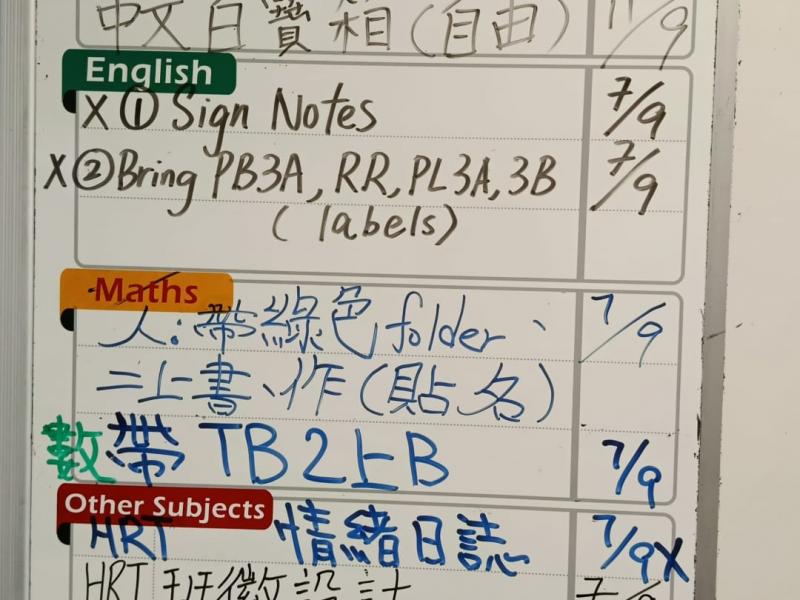 中文百寶箱(自由) 11/9
English
X ① Sign Notes 7/9
X ② Bring PB3A, RR, PL3A, 3B 7/9
(labels)
Maths
人:帶綠色folder、 7/9
二上書、作(貼名)
數 帶 TB2上B 7/9
Other Subjects
HRT 情緒日誌 7/9X
HRT 班徽設計 7/9